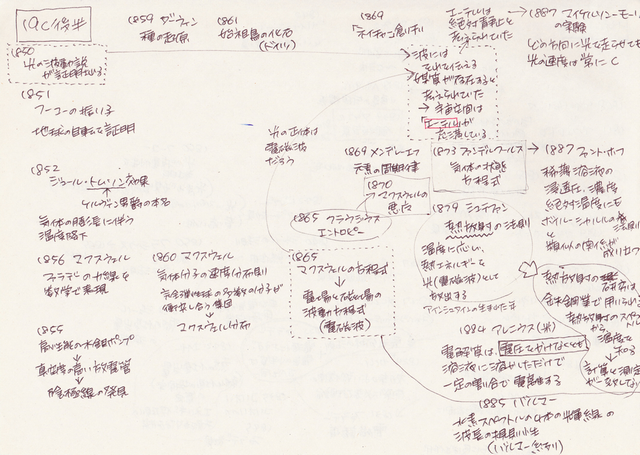 19c後半
1850
光の波動説
が証明される
1851
フーコーの振り子
地球の自転を証明
1852
ジュール・トムソン効果
ケルヴィン男爵の本名
気体の膨張に伴う
温度低下
1856 マクスウェル
ファラデーの力線を
数学で表現
1855
高性能の水銀ポンプ
真空度の高い放電管
陰極線の発見
1859 ダーウィン
種の起原
1861
始祖鳥の化石
(ドイツ)
1869
「ネイチャー」創刊
光の正体は
電磁波
だろう
1860 マクスウェル
気体分子の速度分布則
完全弾性球の多数の分子が
衝突し合う集団
マクスウェル分布
1869 メンデレーエフ
元素の周期律
1870
マクスウェルの
悪魔
1865 クラウジウス
エントロピー
1865
マクスウェルの方程式
電場と磁場の
波動方程式
(電磁波)
エーテルは
絶対静止と
考えられていた
波には
それを伝える
媒質が存在すると
考えられていた
→ 宇宙空間は
「エーテル」が
充満している
1873 ファンデルワールス
気体の状態
方程式
1879 シュテファン
熱放射の法則
温度に応じ
熱エネルギーを
光(電磁波)として
放出する
アインシュタインの生まれた年
1884 アレニウス(米)
電解質は、電圧をかけなくとも
溶液に溶かしただけで
一定の割合で電離する
1885 バルマー
水素スペクトルの4本の光輝線の
波長の規則性
(バルマー系列)
1887 マイケルソン・モー
の実験
どの方向に光を走らせても
光の速度は常に C
1887 ファント・ホフ
稀薄溶液の
浸透圧、濃度
絶対温度にも
ボイル・シャルルの法則
と類似の関係が
成り立つ
熱放射の研究は
製鉄業で用いられる
熱放射のスペクトル
から
温度を
知る
計算と測定
が一致しない